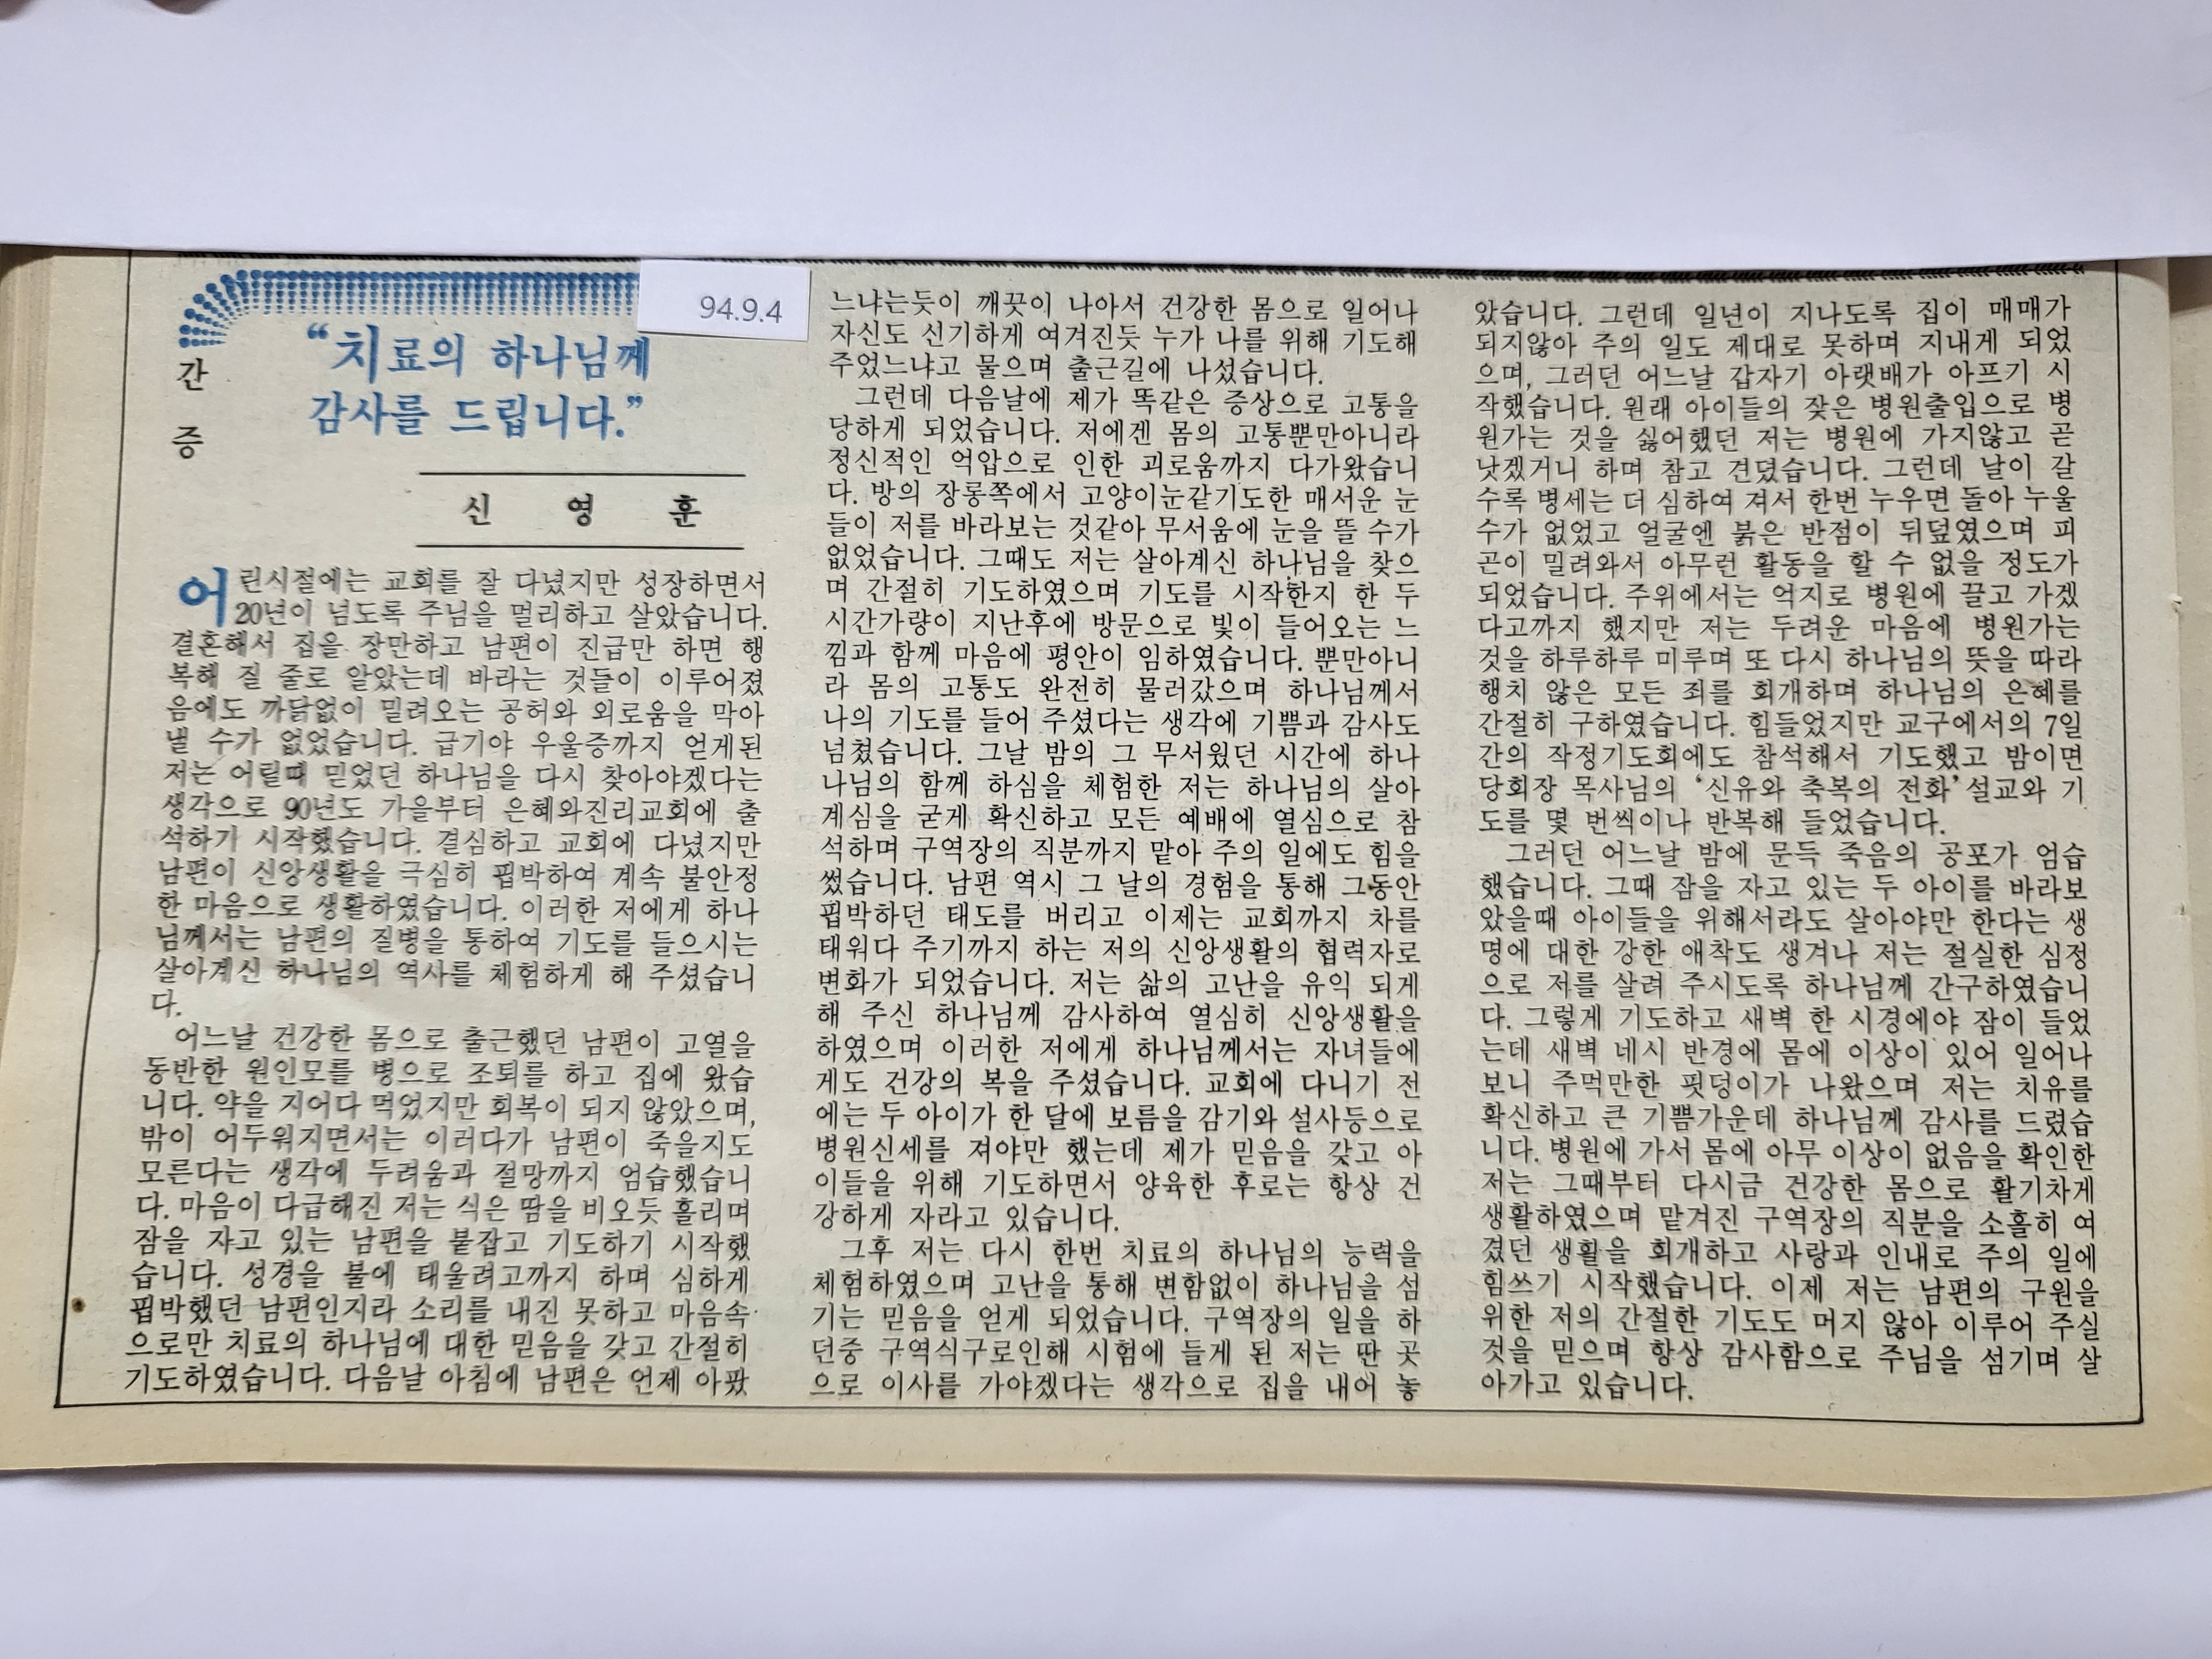 94.9.4
간증
“치료의 하나님께
감사를 드립니다.”
신 영 훈
어린시절에는 교회를 잘 다녔지만 성장하면서
20년이 넘도록 주님을 멀리하고 살았습니다.
결혼해서 집을 장만하고 남편이 진급만 하면 행
복해 질 줄로 알았는데 바라는 것들이 이루어졌
음에도 까닭없이 밀려오는 공허와 외로움을 막아
낼 수가 없었습니다. 급기야 우울증까지 얻게된
저는 어릴때 믿었던 하나님을 다시 찾아야겠다는
생각으로 90년도 가을부터 은혜와진리교회에 출
석하기 시작했습니다. 결심하고 교회에 다녔지만
남편이 신앙생활을 극심히 핍박하여 계속 불안정
한 마음으로 생활하였습니다. 이러한 저에게 하나
님께서는 남편의 질병을 통하여 기도를 들으시는
살아계신 하나님의 역사를 체험하게 해 주셨습니
다.
어느날 건강한 몸으로 출근했던 남편이 고열을
동반한 원인모를 병으로 조퇴를 하고 집에 왔습
니다. 약을 지어다 먹었지만 회복이 되지 않았으며,
밖이 어두워지면서는 이러다가 남편이 죽을지도
모른다는 생각에 두려움과 절망까지 엄습했습니
다. 마음이 다급해진 저는 식은 땀을 비오듯 흘리며
잠을 자고 있는 남편을 붙잡고 기도하기 시작했
습니다. 성경을 불에 태울려고까지 하며 심하게
핍박했던 남편인지라 소리를 내진 못하고 마음속
으로만 치료의 하나님에 대한 믿음을 갖고 간절히
기도하였습니다. 다음날 아침에 남편은 언제 아팠
느냐는듯이 깨끗이 나아서 건강한 몸으로 일어나
자신도 신기하게 여겨진듯 누가 나를 위해 기도해
주었느냐고 물으며 출근길에 나섰습니다.
그런데 다음날에 제가 똑같은 증상으로 고통을
당하게 되었습니다. 저에겐 몸의 고통뿐만아니라
정신적인 억압으로 인한 괴로움까지 다가왔습니
다. 방의 장롱쪽에서 고양이눈같기도한 매서운 눈
들이 저를 바라보는 것같아 무서움에 눈을 뜰 수가
없었습니다. 그때도 저는 살아계신 하나님을 찾으
며 간절히 기도하였으며 기도를 시작한지 한 두
시간가량이 지난후에 방문으로 빛이 들어오는 느
낌과 함께 마음에 평안이 임하였습니다. 뿐만아니
라 몸의 고통도 완전히 물러갔으며 하나님께서
나의 기도를 들어 주셨다는 생각에 기쁨과 감사도
넘쳤습니다. 그날 밤의 그 무서웠던 시간에 하나
나님의 함께 하심을 체험한 저는 하나님의 살아
계심을 굳게 확신하고 모든 예배에 열심으로 참
석하며 구역장의 직분까지 맡아 주의 일에도 힘을
썼습니다. 남편 역시 그 날의 경험을 통해 그동안
핍박하던 태도를 버리고 이제는 교회까지 차를
태워다 주기까지 하는 저의 신앙생활의 협력자로
변화가 되었습니다. 저는 삶의 고난을 유익 되게
해 주신 하나님께 감사하여 열심히 신앙생활을
하였으며 이러한 저에게 하나님께서는 자녀들에
게도 건강의 복을 주셨습니다. 교회에 다니기 전
에는 두 아이가 한 달에 보름을 감기와 설사등으로
병원신세를 져야만 했는데 제가 믿음을 갖고 아
이들을 위해 기도하면서 양육한 후로는 항상 건
강하게 자라고 있습니다.
그후 저는 다시 한번 치료의 하나님의 능력을
체험하였으며 고난을 통해 변함없이 하나님을 섬
기는 믿음을 얻게 되었습니다. 구역장의 일을 하
던중 구역식구로인해 시험에 들게 된 저는 딴 곳
으로 이사를 가야겠다는 생각으로 집을 내어 놓
았습니다. 그런데 일년이 지나도록 집이 매매가
되지않아 주의 일도 제대로 못하며 지내게 되었
으며, 그러던 어느날 갑자기 아랫배가 아프기 시
작했습니다. 원래 아이들의 잦은 병원출입으로 병
원가는 것을 싫어했던 저는 병원에 가지않고 곧
낫겠거니 하며 참고 견뎠습니다. 그런데 날이 갈
수록 병세는 더 심하여 져서 한번 누우면 돌아 누울
수가 없었고 얼굴엔 붉은 반점이 뒤덮였으며 피
곤이 밀려와서 아무런 활동을 할 수 없을 정도가
되었습니다. 주위에서는 억지로 병원에 끌고 가겠
다고까지 했지만 저는 두려운 마음에 병원가는
것을 하루하루 미루며 또 다시 하나님의 뜻을 따라
행치 않은 모든 죄를 회개하며 하나님의 은혜를
간절히 구하였습니다. 힘들었지만 교구에서의 7일
간의 작정기도회에도 참석해서 기도했고 밤이면
당회장 목사님의 ‘신유와 축복의 전화’ 설교와 기
도를 몇 번씩이나 반복해 들었습니다.
그러던 어느날 밤에 문득 죽음의 공포가 엄습
했습니다. 그때 잠을 자고 있는 두 아이를 바라보
았을때 아이들을 위해서라도 살아야만 한다는 생
명에 대한 강한 애착도 생겨나 저는 절실한 심정
으로 저를 살려 주시도록 하나님께 간구하였습니
다. 그렇게 기도하고 새벽 한 시경에야 잠이 들었
는데 새벽 네시 반경에 몸에 이상이 있어 일어나
보니 주먹만한 핏덩이가 나왔으며 저는 치유를
확신하고 큰 기쁨가운데 하나님께 감사를 드렸습
니다. 병원에 가서 몸에 아무 이상이 없음을 확인한
저는 그때부터 다시금 건강한 몸으로 활기차게
생활하였으며 맡겨진 구역장의 직분을 소홀히 여
겼던 생활을 회개하고 사랑과 인내로 주의 일에
힘쓰기 시작했습니다. 이제 저는 남편의 구원을
위한 저의 간절한 기도도 머지 않아 이루어 주실
것을 믿으며 항상 감사함으로 주님을 섬기며 살
아가고 있습니다.